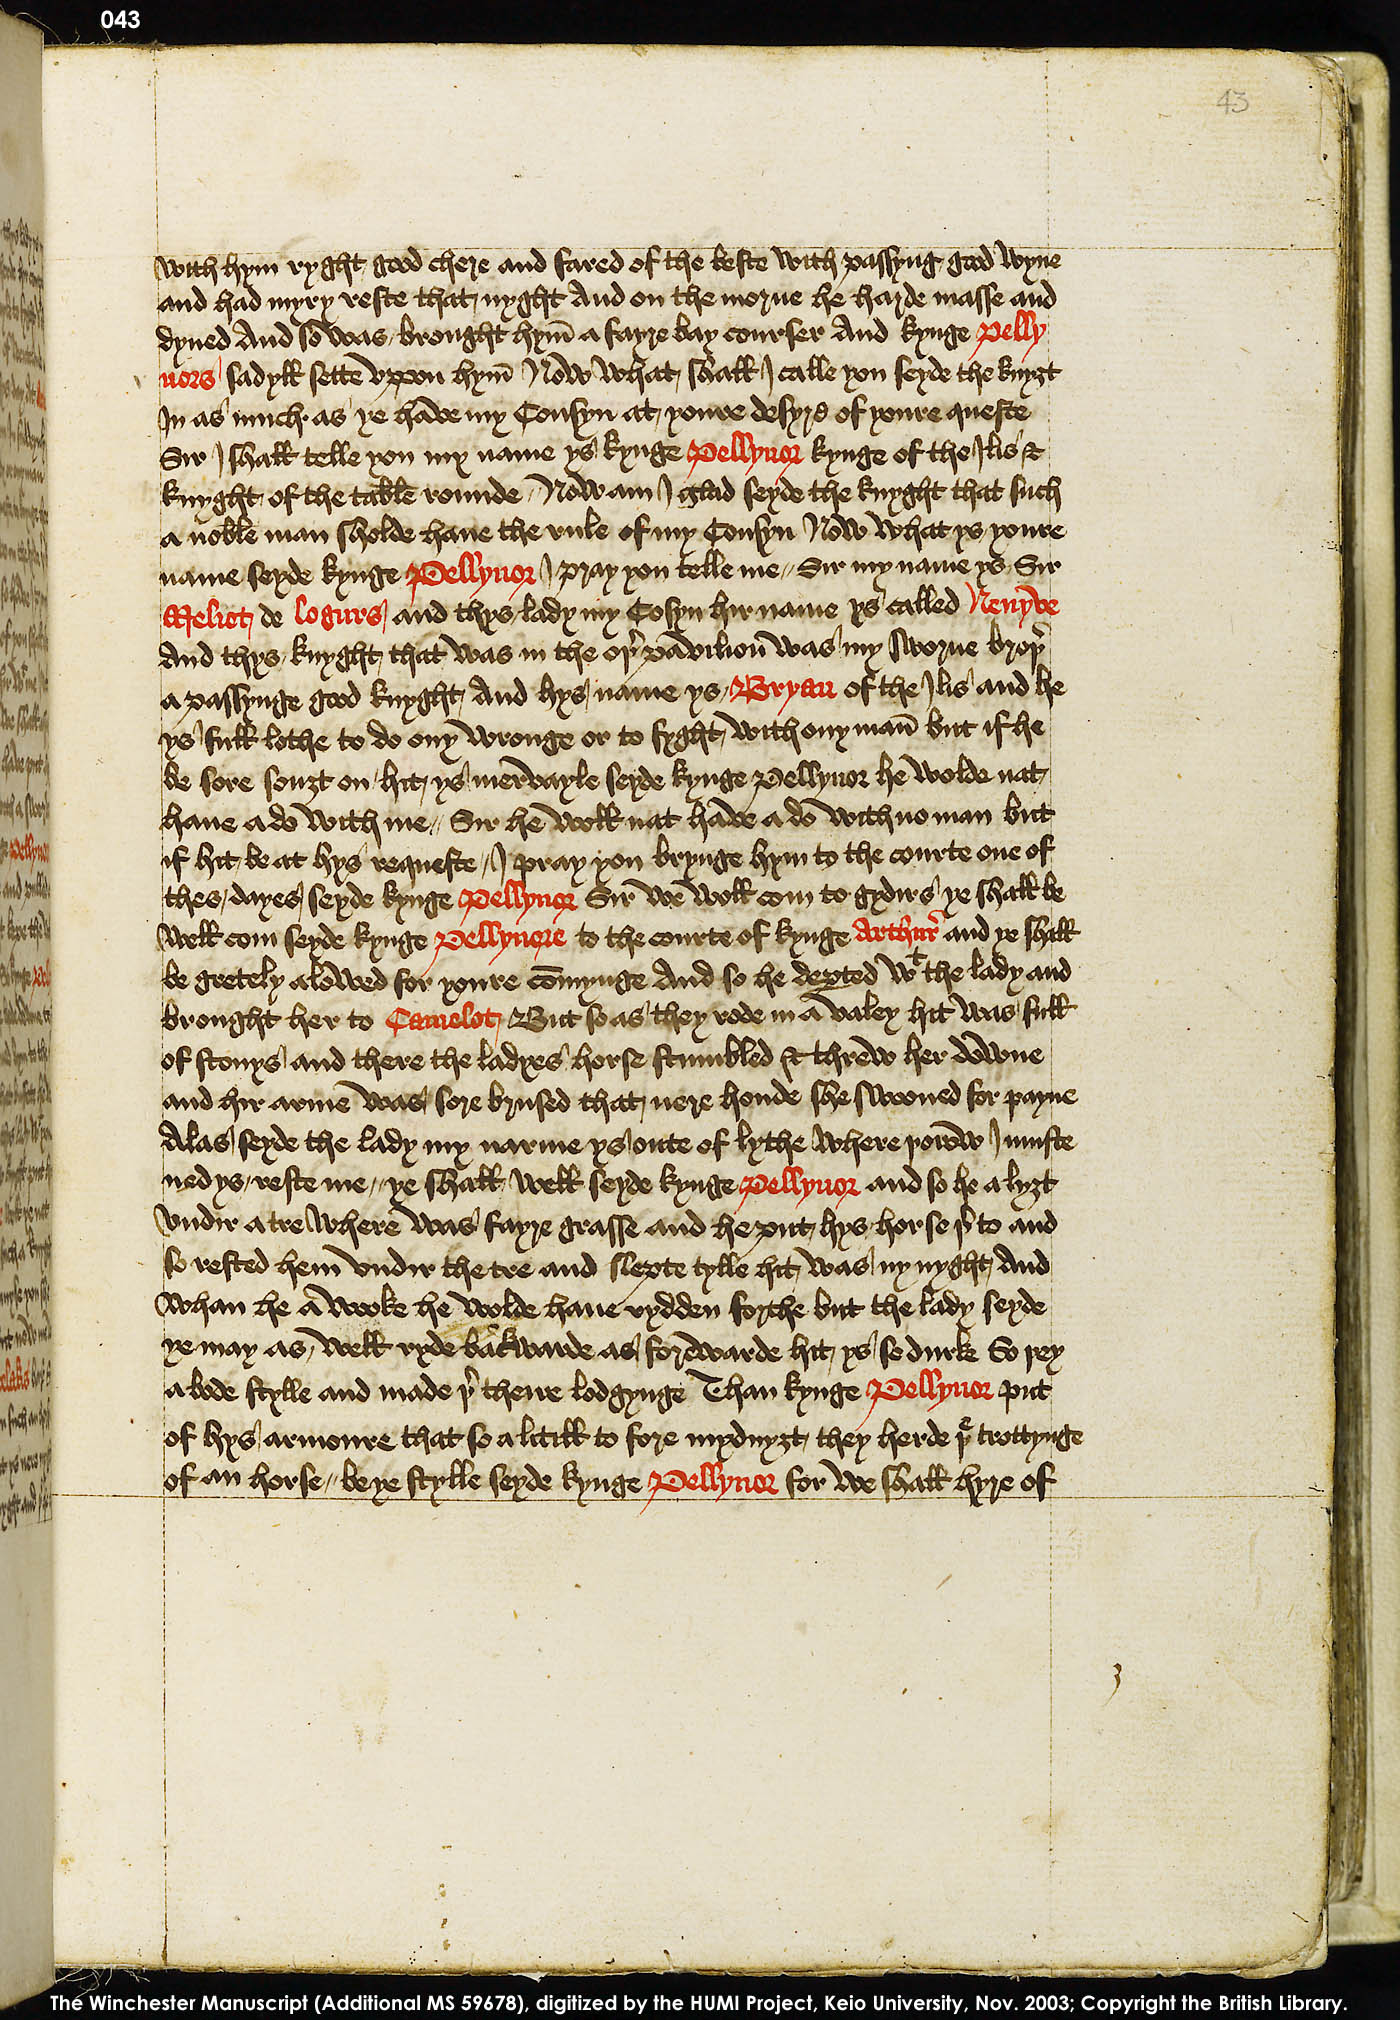 043
43
with hym ryght good chere and fared of the beste with passyng good wyne
and had myry reste that nyght And on the morne he harde masse and
dyned And so was brought hym̄ a fayre bay courser And kynge Pelly
nors sadyll sette vppon hym̄ Now what shall I calle you seyde the knyȝt
In as much as ye have my Cousyn at youre desyre of youre queste
Sir I shall telle you my name ys kynge Pellynor kynge of the Ilis &
knyght of the table rounde // Now am I glad seyde the knyght that such
a noble man sholde haue the rule of my Cousyn Now what ys youre
name seyde kynge Pellynor I pray you telle me // Sir my name ys Sir
Meliot de logurs and thys lady my Cosyn hir name ys called Nenyve
And thys knyght that was in the oþr pavilion̄ was my sworne broþr
a passynge good knyght And hys name ys Bryan of the Ilis and he
ys full lothe to do ony wronge or to fyght with ony man̄ but if he
be sore souȝt on / hit ys mervayle seyde kynge Pellynor he wolde nat
haue ado with me // Sir he woll nat have ado with no man but
if hit be at hys requeste // I pray you brynge hym to the courte one of
thes dayes seyde kynge Pellynor Sir we woll com to gydirs ye shall be
well com seyde kynge Pellynore to the courte of kynge Arthure and ye shall
be gretely alowed for youre com̄ynge And so he depted wt the lady and
brought her to Camelot / But so as they rode in a valey hit was full
of stonys and there the ladyes horse stumbled & threw her downe
and hir arme was sore brused that nere honde she swooned for payne
Alas seyde the lady my narme ys oute of lythe where porow I muste
nedys reste me // ye shall well seyde kynge Pellynor and so he a lyȝt
vndir a tre where was fayre grasse and he put hys horse þrto and
so rested hem̄ vndir the tre and slepte tylle hit was ny nyght And
whan he a wooke he wolde haue rydden forthe but the lady seyde
ye may as well ryde bakwarde as forewarde hit ys so durke So þey
abode stylle and made þr there lodgynge Than kynge Pellynor put
of hys armoure that so a litill to fore mydnyȝt they herde þe trottynge
of an horse // be ye stylle seyde kynge Pellynor for we shall hyre of
The Winchester Manuscript (Additional MS 59678), digitized by the HUMI Project, Keio University, Nov. 2003; Copyright the British Library.